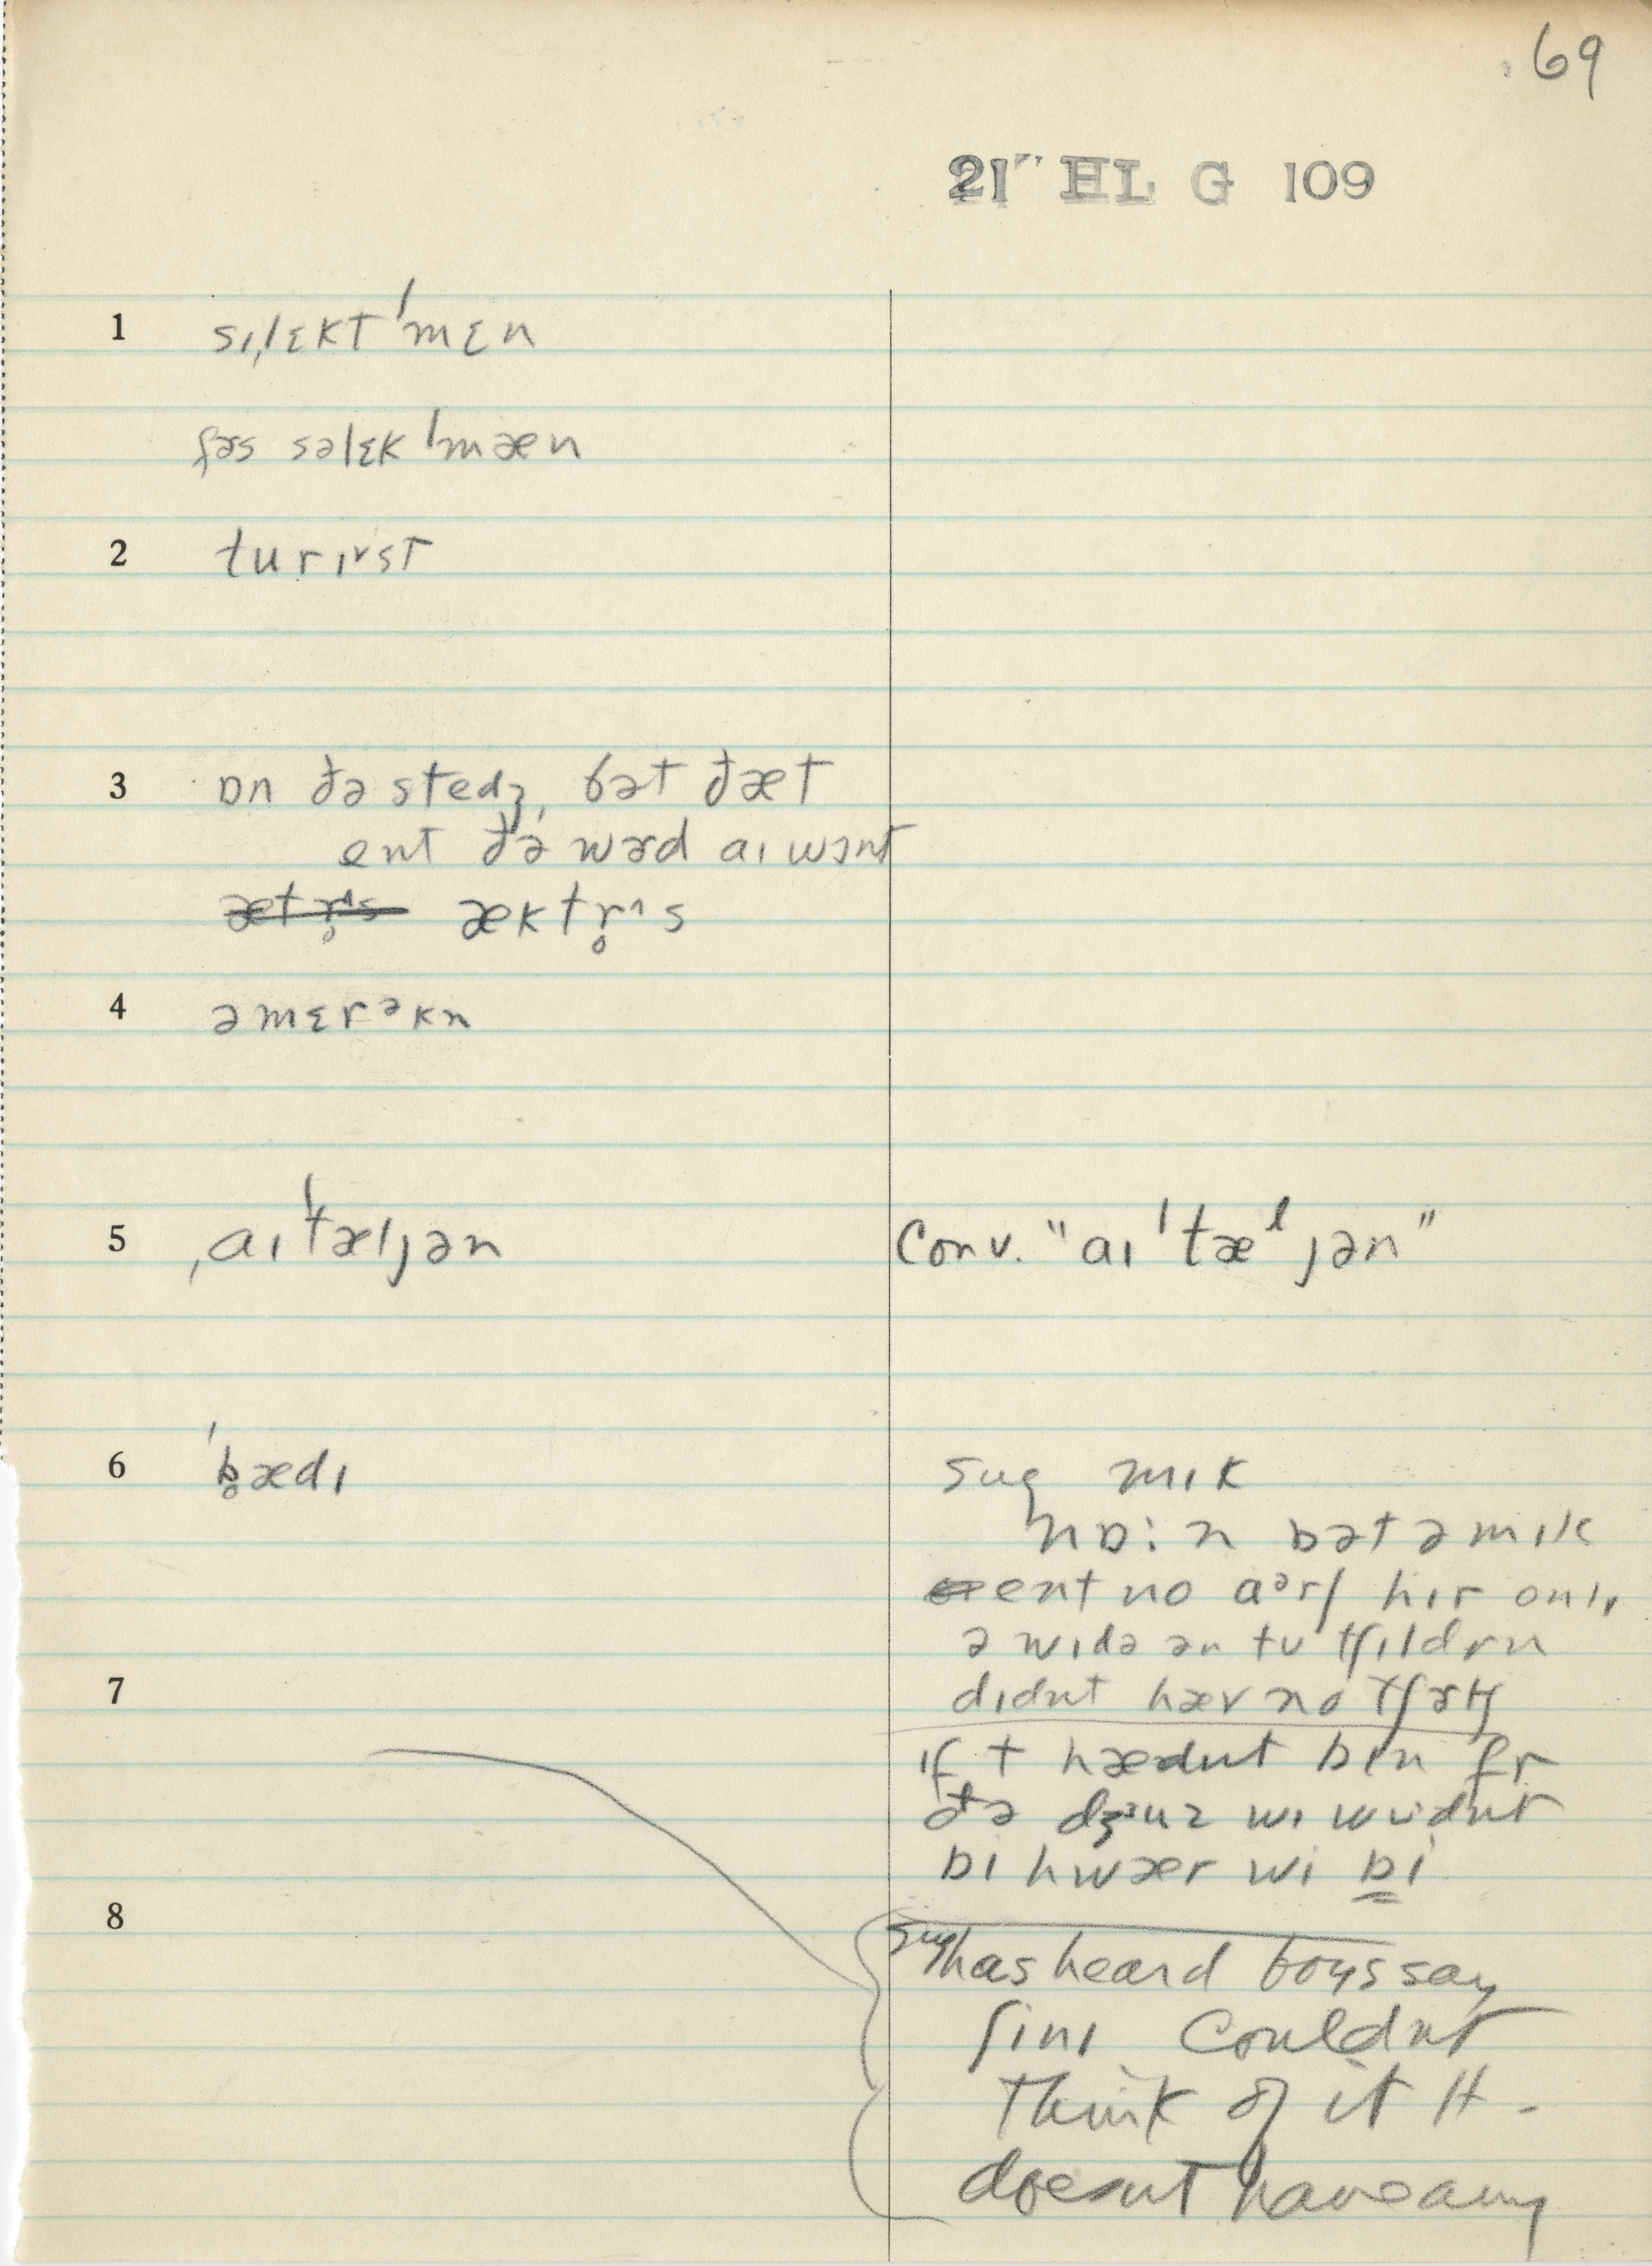 69
21" HL G 109
1 sɪˌlɛkt ˈmɛn
fɚs səlɛk ˈmæn
2 turɪ˅st
3 ɒn ðə stedʒ, bət ðæt
ent ðə wɚd aɪ wɔnt
æt r̥^s ækt r̥^s
4 əmɛrᵊkn
5 ˌaɪˈtæljən Conv. "aɪ ˈtæˡ jən"
6 ˈb̥ædɪ sug mɪk
nɒ: n bət ə mɪk
ent no aᵊrʃ hɪr onlɪ
ə wɪdə ən tu tʃɪldrn
7 dɪdnt hæv no tʃɚtʃ
ɪf t hædnt bɪn fr
ðə dʒᶾuz wɪ wudnt
bi hwær wi bi
8 sug has heard boys say
ʃinɪ Couldnt
Think of it H -
doesnt have any